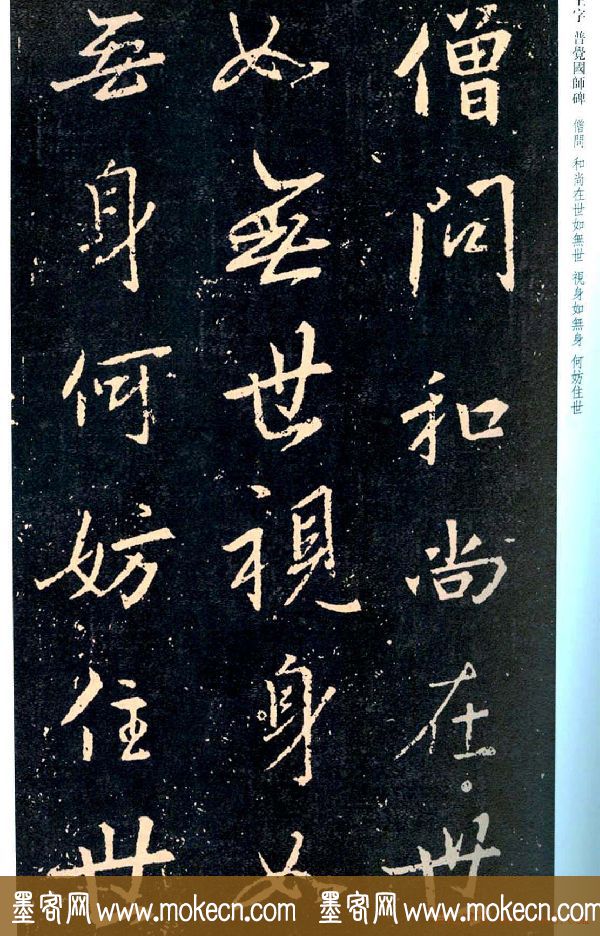 僧問和尚在世
如無世視身如
無身何妨住世
王字 普覺國師碑 僧問 和尚在世如無世 視身如無身 何妨住世
墨客网 www.mokecn.com 墨客网 www.mokecn.com